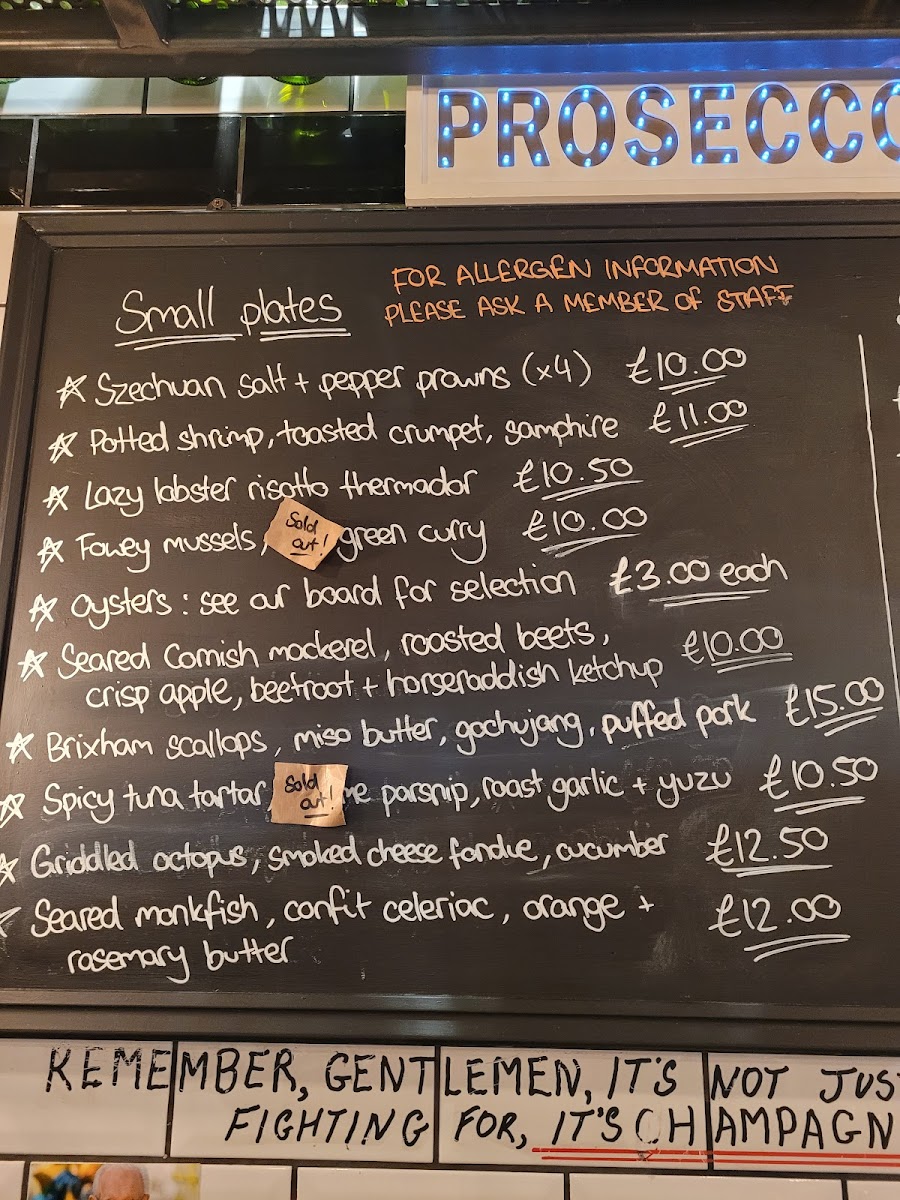 PROSECCO
Small plates
FOR ALLERGEN INFORMATION
PLEASE ASK A MEMBER OF STAFF
Szechuan salt + pepper prawns (x4) £10.00
Potted shrimp, toasted crumpet, samphire £11.00
Lazy lobster risotto thermador £10.50
Fowey mussels, Sold out! green curry £10.00
Oysters: see our board for selection £3.00 each
Seared Cornish mackerel, roasted beets,
crisp apple, beetroot + horseraddish ketchup £10.00
Brixham scallops, miso butter, gochujang, puffed pork £15.00
Spicy tuna tartar, Sold out! me parsnip, roast garlic + yuzu £10.50
Griddled octopus, smoked cheese fondue, cucumber £12.50
Seared monkfish, confit celeriac, orange + £12.00
rosemary butter
REMEMBER, GENTLEMEN, IT'S NOT JUS
FIGHTING FOR, IT'S CHAMPAGN